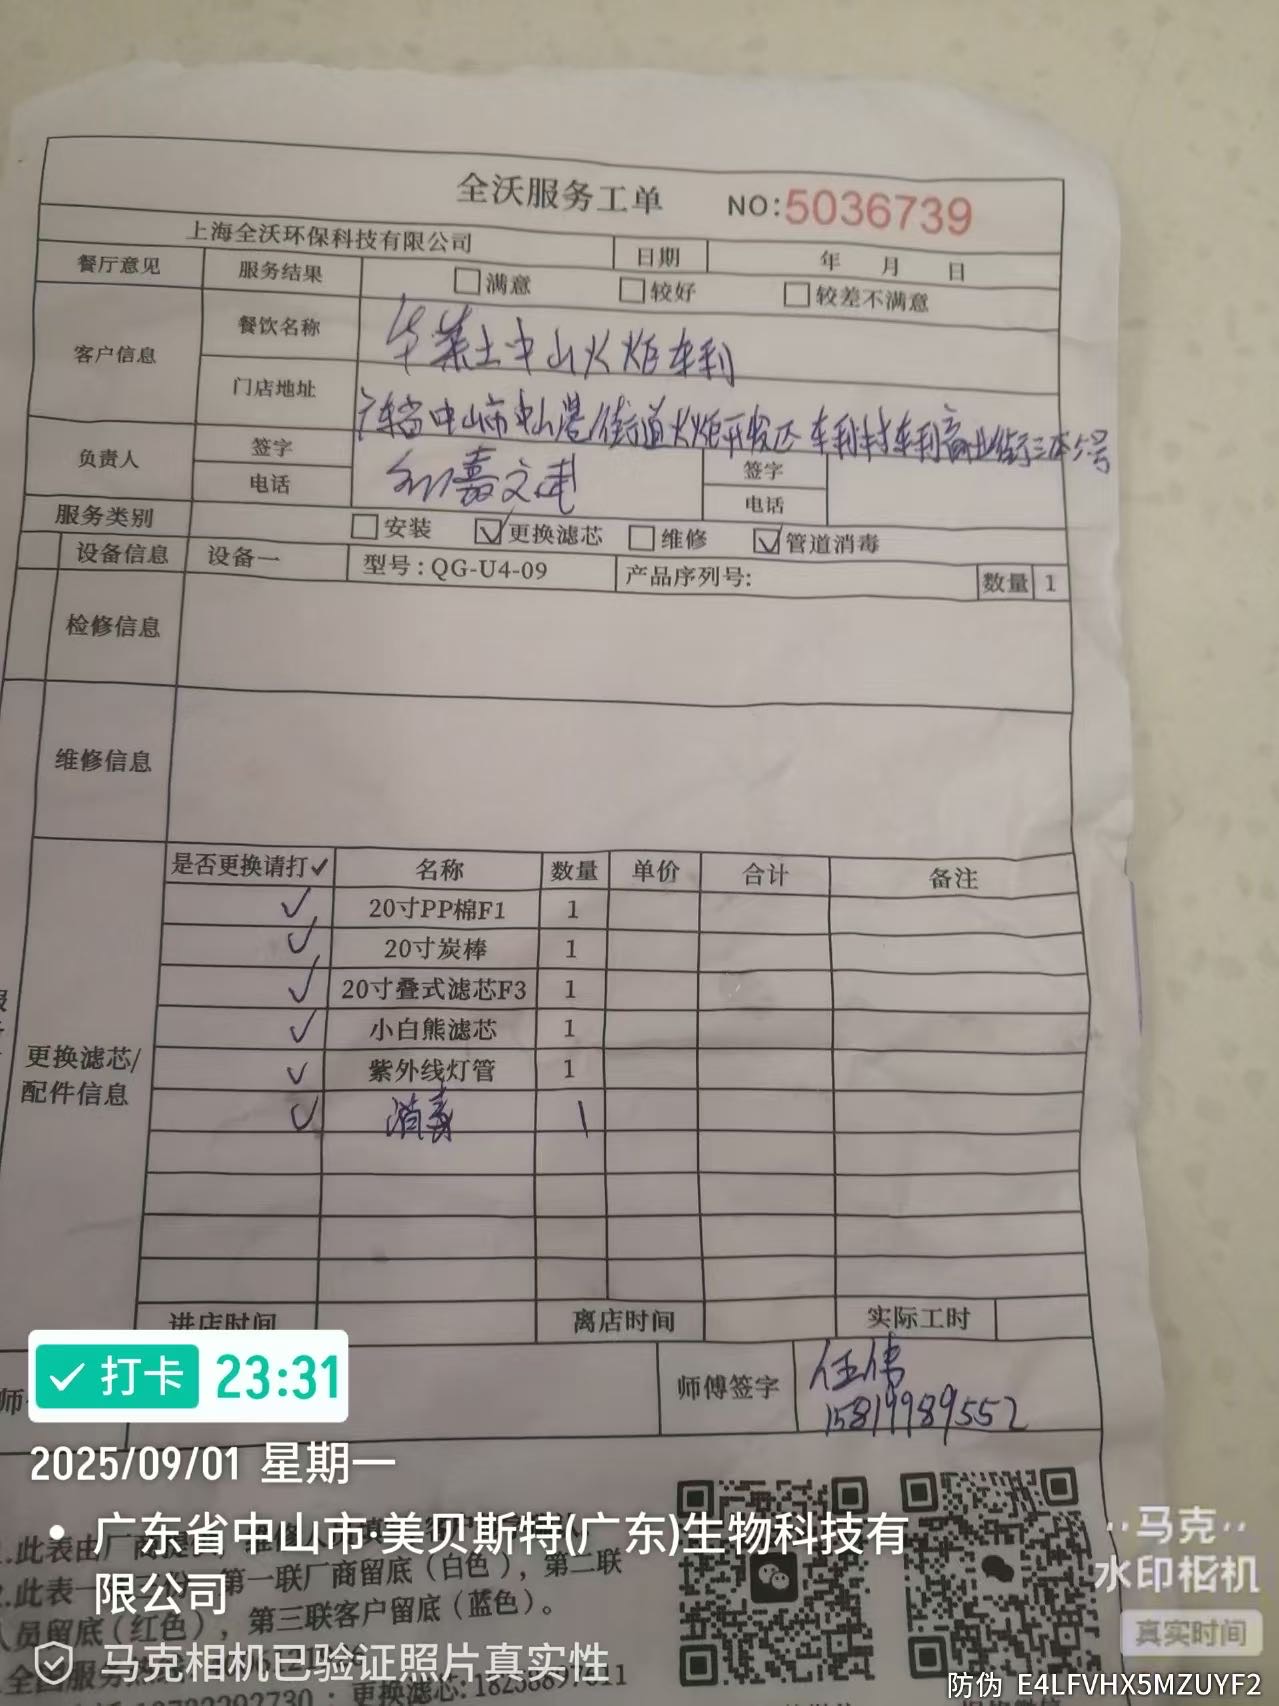 全沃服务工单 NO:5036739
上海全沃环保科技有限公司 日期 年 月 日
餐厅意见 服务结果 满意 较好 较差不满意
客户信息 餐饮名称 华莱士中山火炬车利
门店地址 广东省中山市中山港街道火炬开发区车利村车利商业街三栋5号
负责人 签字 刘嘉文 签字
电话 电话
服务类别 安装 更换滤芯 维修 管道消毒
设备信息 设备一 型号:QG-U4-09 产品序列号: 数量 1
检修信息
维修信息
是否更换请打✓ 名称 数量 单价 合计 备注
✓ 20寸PP棉F1 1
✓ 20寸炭棒 1
✓ 20寸叠式滤芯F3 1
✓ 小白熊滤芯 1
✓ 紫外线灯管 1
✓ 消毒 1
更换滤芯/
配件信息
进店时间 离店时间 实际工时
师傅签字 任伟
15819989552
打卡 23:31
2025/09/01 星期一
广东省中山市·美贝斯特(广东)生物科技有
限公司
.此表由厂商提
.此表一 第一联厂商留底(白色),第二联
人员留底(红色),第三联客户留底(蓝色)。
马克相机已验证照片真实性
全国服务
更换滤芯:
马克
水印相机
真实时间
防伪 E4LFVHX5MZUYF2